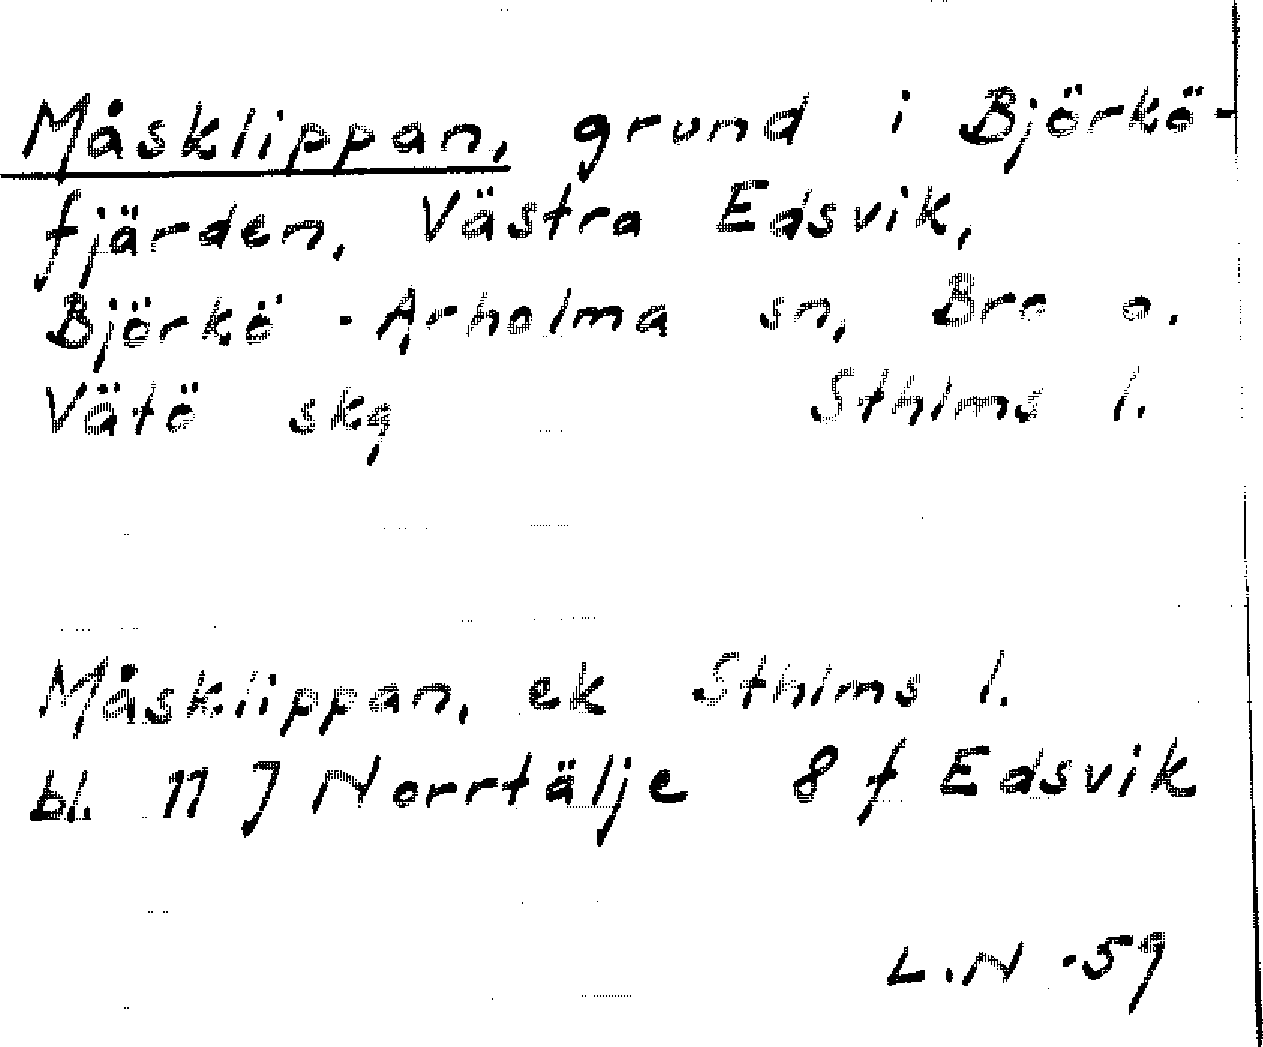 Måsklippan, grund i Björkö-
fjärden, Västra Edsvik,
Björkö-Arholma sn, Bro o.
Vätö skg Sthlms l.
Måsklippan, ek Sthlms l.
bl. 11 J Norrtälje 8 f Edsvik
L.N -59